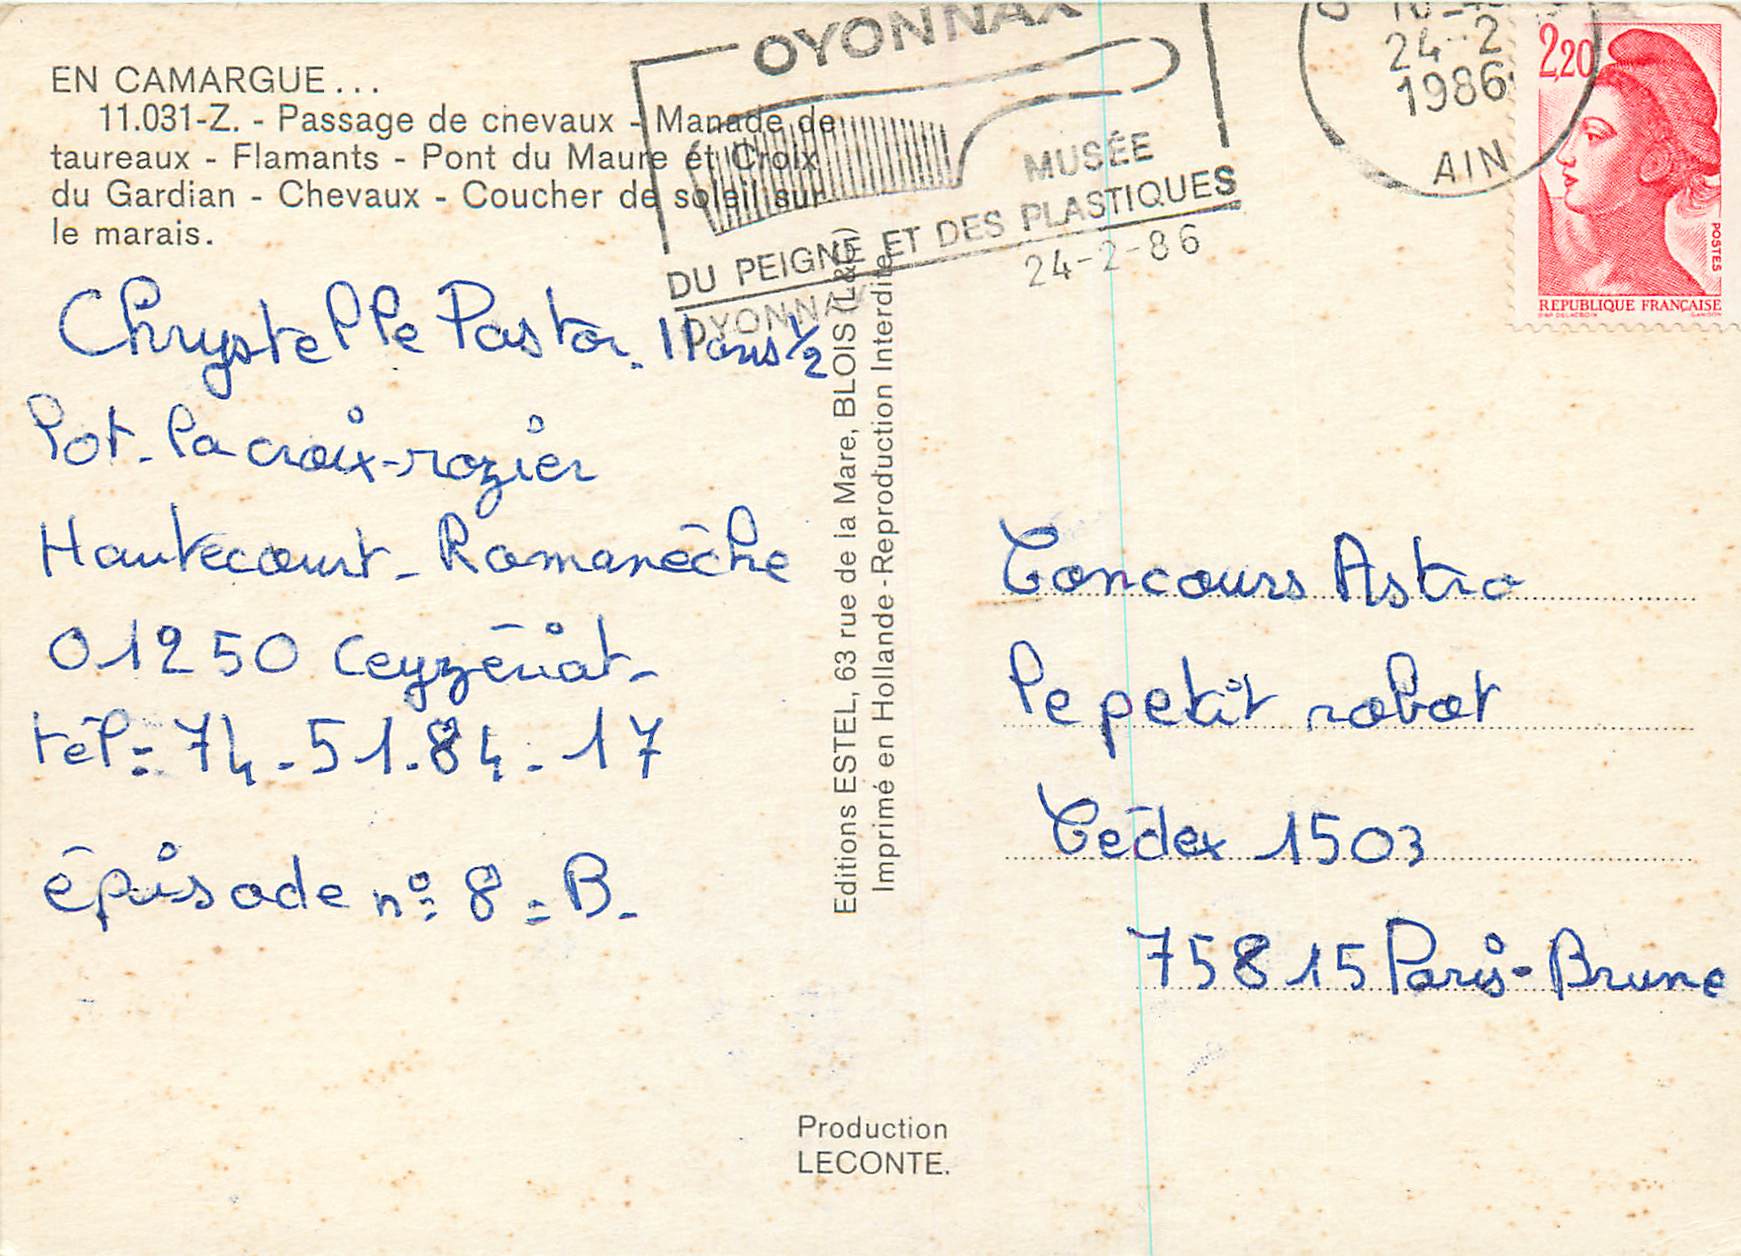 EN CAMARGUE...
11.031-Z. - Passage de chevaux - Manade de
taureaux - Flamants - Pont du Maure et Croix
du Gardian - Chevaux - Coucher de soleil sur
le marais.
OYONNAX
MUSÉE
DU PEIGNE ET DES PLASTIQUES
24-2-86
OYONNAX
24-2
1986
AIN
2,20
POSTES
REPUBLIQUE FRANÇAISE
Chrystelle Pastor. 11ans 1/2
lot. la croix-rozier
Hautecourt - Romanèche
01250 Ceyzériat-
tél: 74.51.84.17
épisode n° 8 = B.
Editions ESTEL, 63 rue de la Mare, BLOIS (L&C)
Imprimé en Hollande - Reproduction Interdite
Concours Astro
le petit robot
Cédex 1503
75815 Paris-Brune
Production
LECONTE.